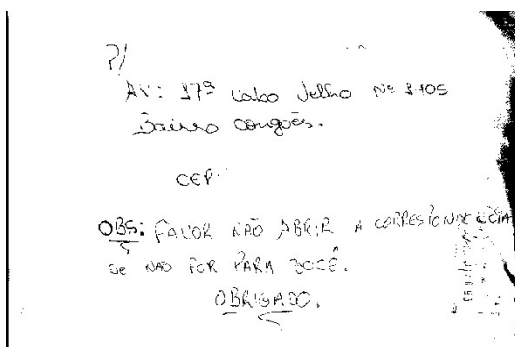 P/
AV: 17ª Cabo Velho Nº 1105
Bairro congós.
CEP:
OBS: FAVOR NÃO ABRIR A CORRESPONDÊNCIA
SE NÃO FOR PARA VOCÊ.
OBRIGADO.